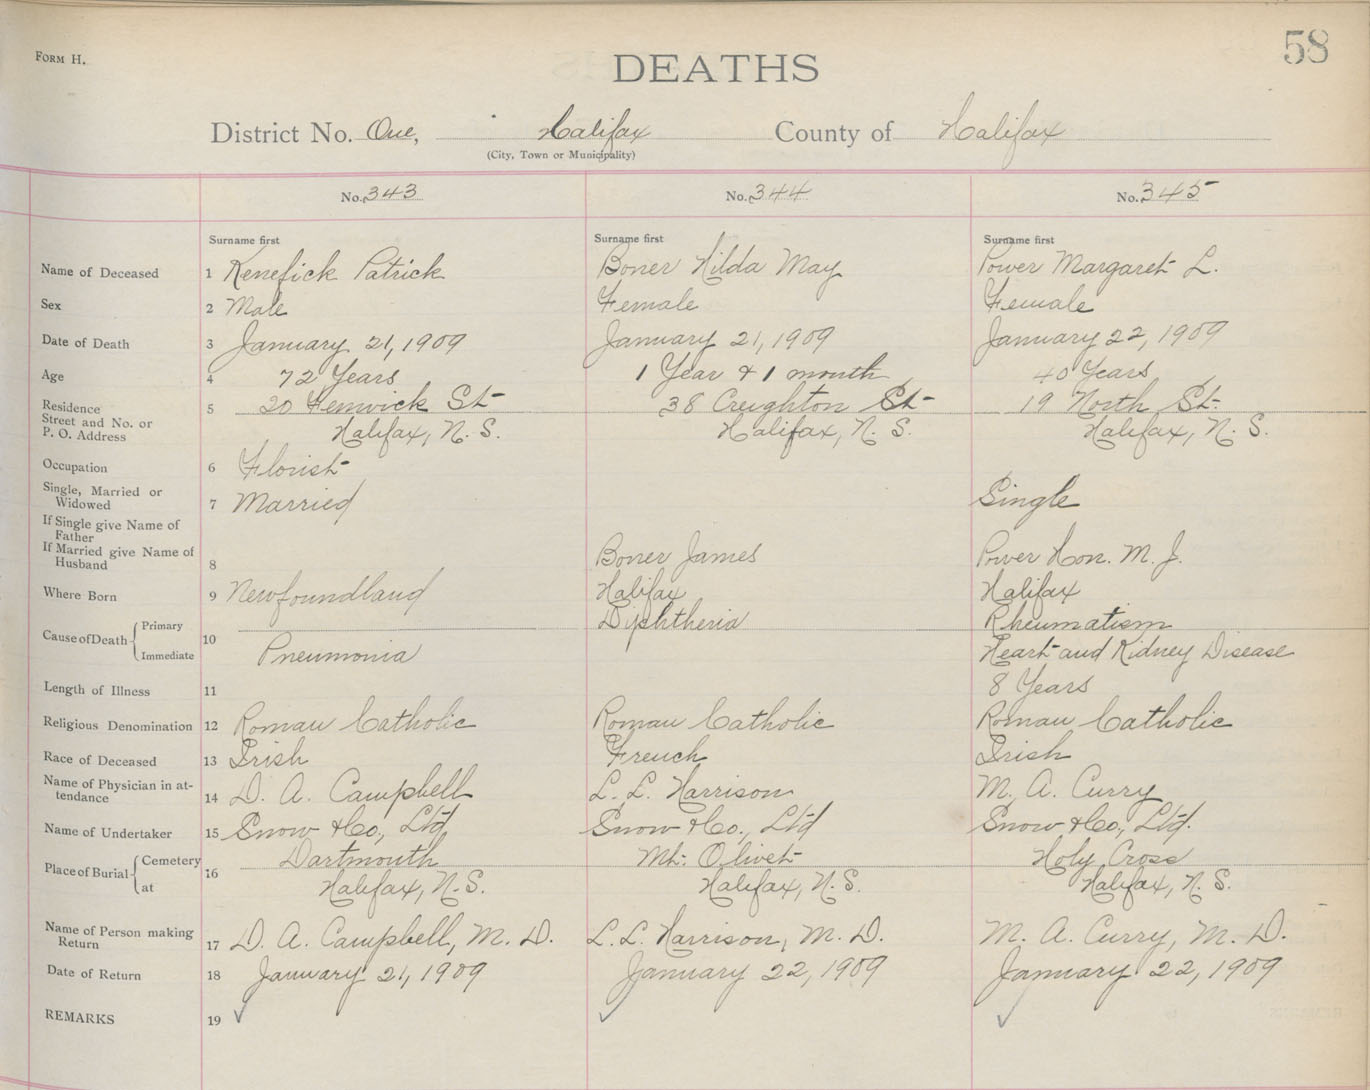 58
FORM H.
DEATHS
District No. One, Halifax County of Halifax
(City, Town or Municipality)
No. 343 No. 344 No. 345
Surname first Surname first Surname first
Name of Deceased 1 Kenefick Patrick Boner Hilda May Power Margaret L.
Sex 2 Male Female Female
Date of Death 3 January 21, 1909 January 21, 1909 January 22, 1909
Age 4 72 Years 1 Year & 1 month 40 Years
Residence 5 20 Fenwick St 38 Creighton St 19 North St.
Street and No. or
P. O. Address Halifax, N. S. Halifax, N. S. Halifax, N. S.
Occupation 6 Florist
Single, Married or
Widowed 7 Married Single
If Single give Name of
Father
If Married give Name of
Husband 8 Boner James Power Hon. M. J.
Where Born 9 Newfoundland Halifax Halifax
Cause of Death Primary 10 Diphtheria Rheumatism
Immediate Pneumonia Heart and Kidney Disease
Length of Illness 11 8 Years
Religious Denomination 12 Roman Catholic Roman Catholic Roman Catholic
Race of Deceased 13 Irish French Irish
Name of Physician in at-
tendance 14 D. A. Campbell L. L. Harrison M. A. Curry
Name of Undertaker 15 Snow & Co., Ltd Snow & Co., Ltd Snow & Co., Ltd.
Place of Burial Cemetery 16 Dartmouth Mt. Olivet Holy Cross
at Halifax, N. S. Halifax, N. S. Halifax, N. S.
Name of Person making
Return 17 D. A. Campbell, M. D. L. L. Harrison, M. D. M. A. Curry, M. D.
Date of Return 18 January 21, 1909 January 22, 1909 January 22, 1909
REMARKS 19 ✓ ✓ ✓